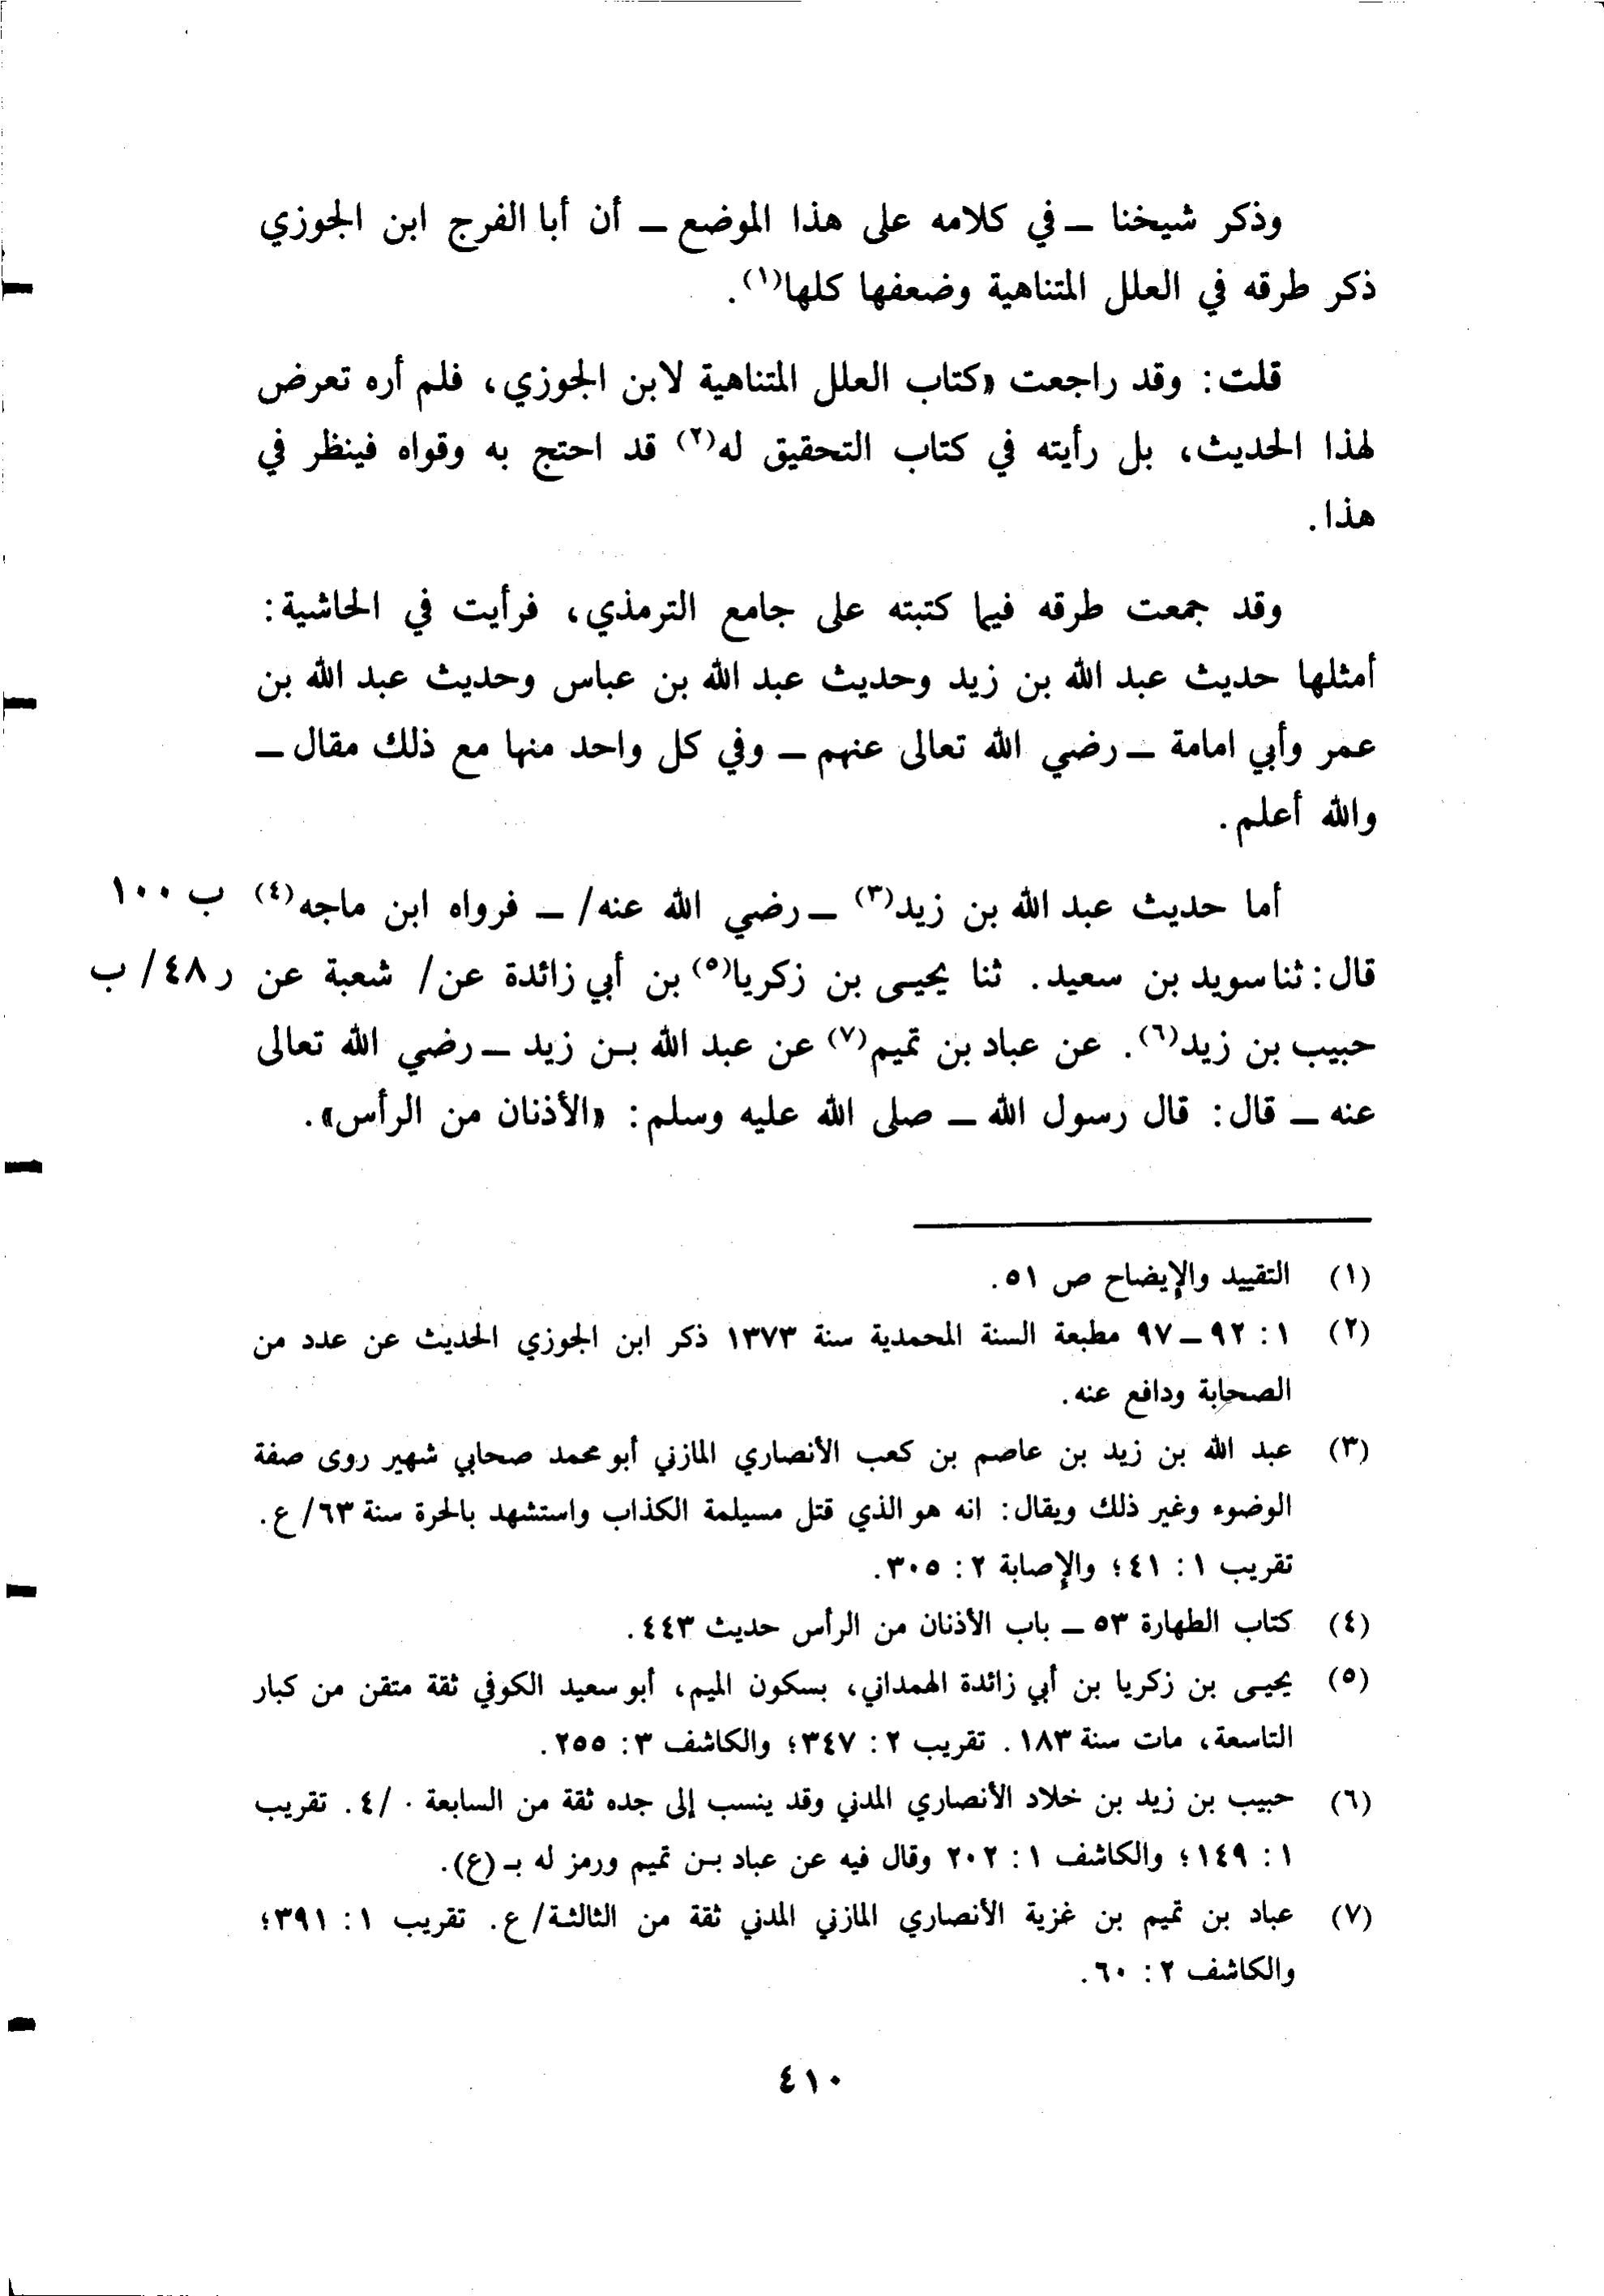 وذكر شيخنا – في كلامه على هذا الموضع – أن أبا الفرج ابن الجوزي
ذكر طرقه في العلل المتناهية وضعفها كلها(١).
قلت: وقد راجعت «كتاب العلل المتناهية لابن الجوزي، فلم أره تعرض
لهذا الحديث، بل رأيته في كتاب التحقيق له(٢) قد احتج به وقواه فينظر في
هذا.
وقد جمعت طرقه فيما كتبته على جامع الترمذي، فرأيت في الحاشية:
أمثلها حديث عبد الله بن زيد وحديث عبد الله بن عباس وحديث عبد الله بن
عمر وأبي امامة – رضي الله تعالى عنهم – وفي كل واحد منها مع ذلك مقال –
والله أعلم.
أما حديث عبد الله بن زيد(٣) – رضي الله عنه/ – فرواه ابن ماجه(٤) ب ١٠٠
قال: ثنا سويد بن سعيد. ثنا يحيى بن زكريا(٥) بن أبي زائدة عن/ شعبة عن ر ٤٨/ ب
حبيب بن زيد(٦). عن عباد بن تميم(٧) عن عبد الله بن زيد – رضي الله تعالى
عنه – قال: قال رسول الله – صلى الله عليه وسلم: «الأذنان من الرأس».
(١) التقييد والإيضاح ص ٥١.
(٢) ١: ٩٢ – ٩٧ مطبعة السنة المحمدية سنة ١٣٧٣ ذكر ابن الجوزي الحديث عن عدد من
الصحابة ودافع عنه.
(٣) عبد الله بن زيد بن عاصم بن كعب الأنصاري المازني أبو محمد صحابي شهير روى صفة
الوضوء وغير ذلك ويقال: انه هو الذي قتل مسيلمة الكذاب واستشهد بالحرة سنة ٦٣/ع.
تقريب ١: ٤١؛ والإصابة ٢: ٣٠٥.
(٤) كتاب الطهارة ٥٣ – باب الأذنان من الرأس حديث ٤٤٣.
(٥) يحيى بن زكريا بن أبي زائدة الهمداني، بسكون الميم، أبو سعيد الكوفي ثقة متقن من كبار
التاسعة، مات سنة ١٨٣. تقريب ٢: ٣٤٧؛ والكاشف ٣: ٢٥٥.
(٦) حبيب بن زيد بن خلاد الأنصاري المدني وقد ينسب إلى جده ثقة من السابعة ٠ /٤. تقريب
١: ١٤٩؛ والكاشف ١: ٢٠٢ وقال فيه عن عباد بن تميم ورمز له بـ (ع).
(٧) عباد بن تميم بن غزية الأنصاري المازني المدني ثقة من الثالثة/ ع. تقريب ١: ٣٩١؛
والكاشف ٢: ٦٠.
٤١٠